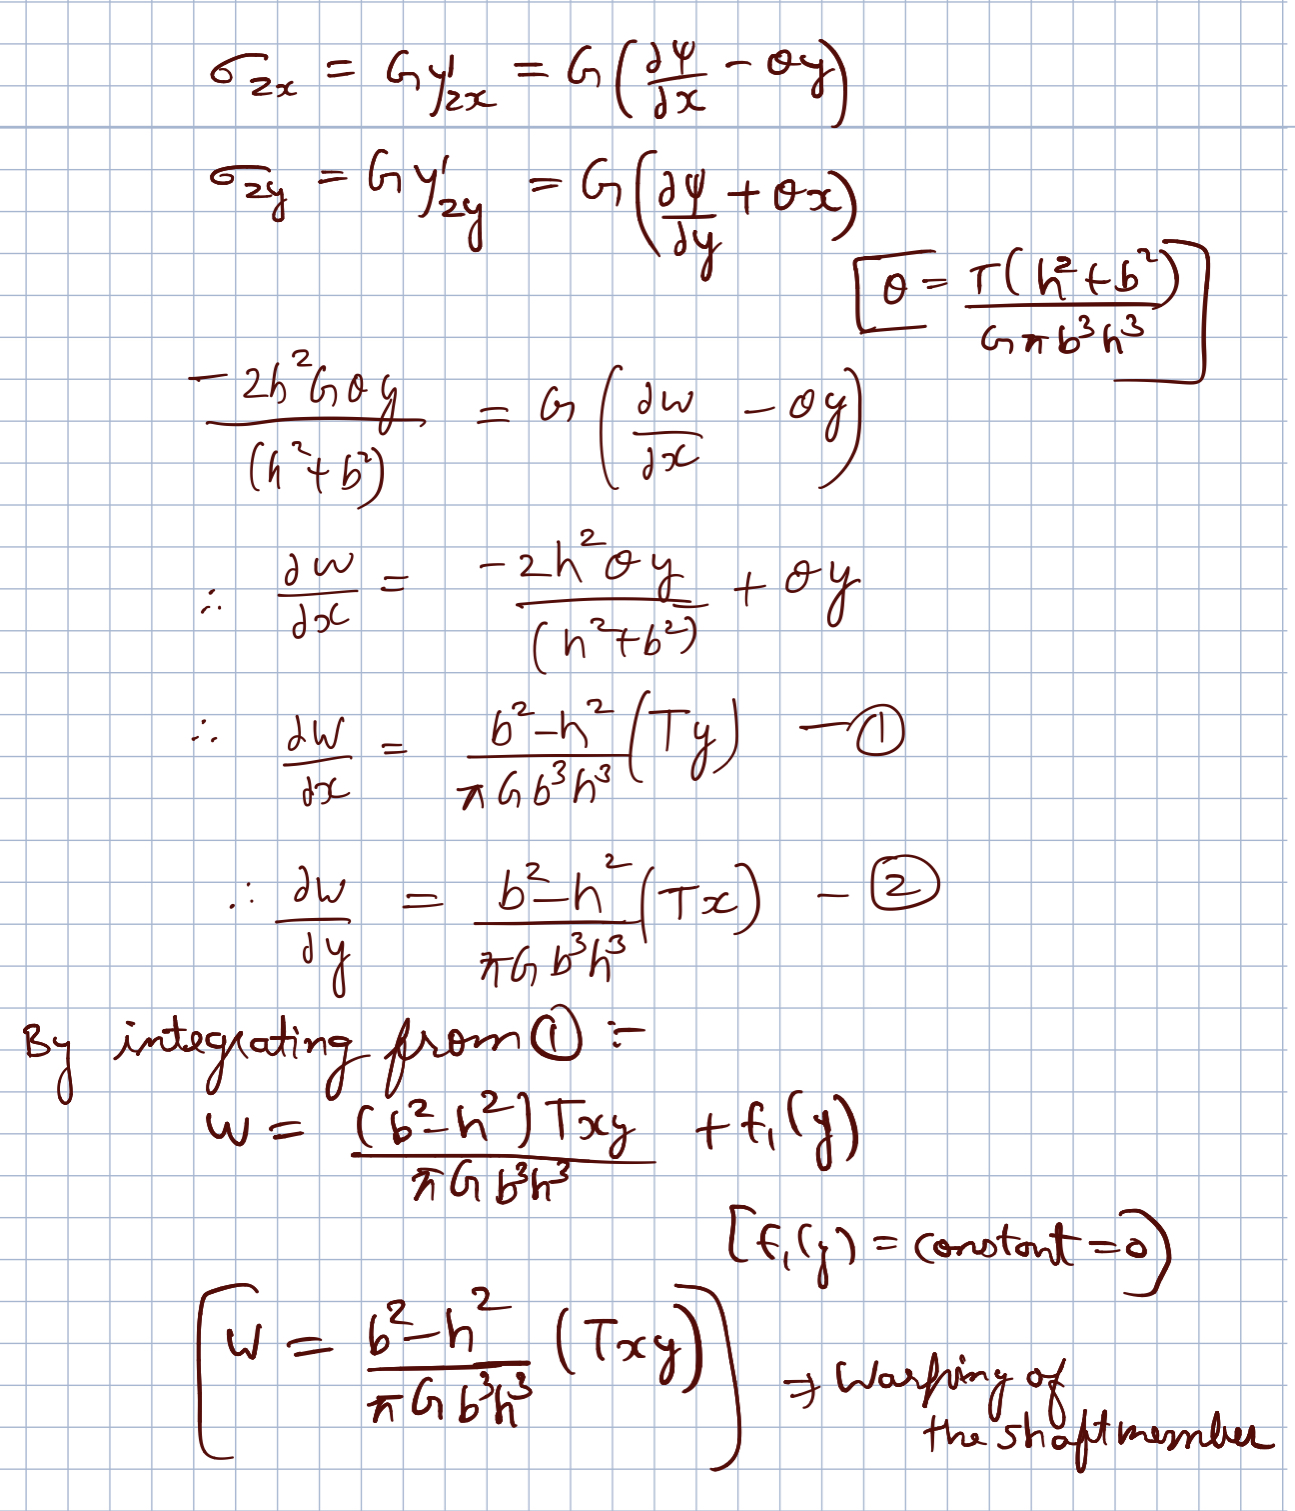 σzx = Gγzx = G(∂ψ/∂x − θy)
σzy = Gγzy = G(∂ψ/∂y + θx)
θ = T(h²+b²)/Gπb³h³
−2h²Gθy/(h²+b²) = G(∂w/∂x − θy)
∴ ∂w/∂x = −2h²θy/(h²+b²) + θy
∴ ∂w/∂x = b²−h²/πGb³h³ (Ty) — ①
∴ ∂w/∂y = b²−h²/πGb³h³ (Tx) — ②
By integrating from ① :-
w = (b²−h²)Txy/πGb³h³ + f₁(y)
[f₁(y) = constant = 0)
[w = b²−h²/πGb³h³ (Txy)] ⇒ Warping of
the shaft member